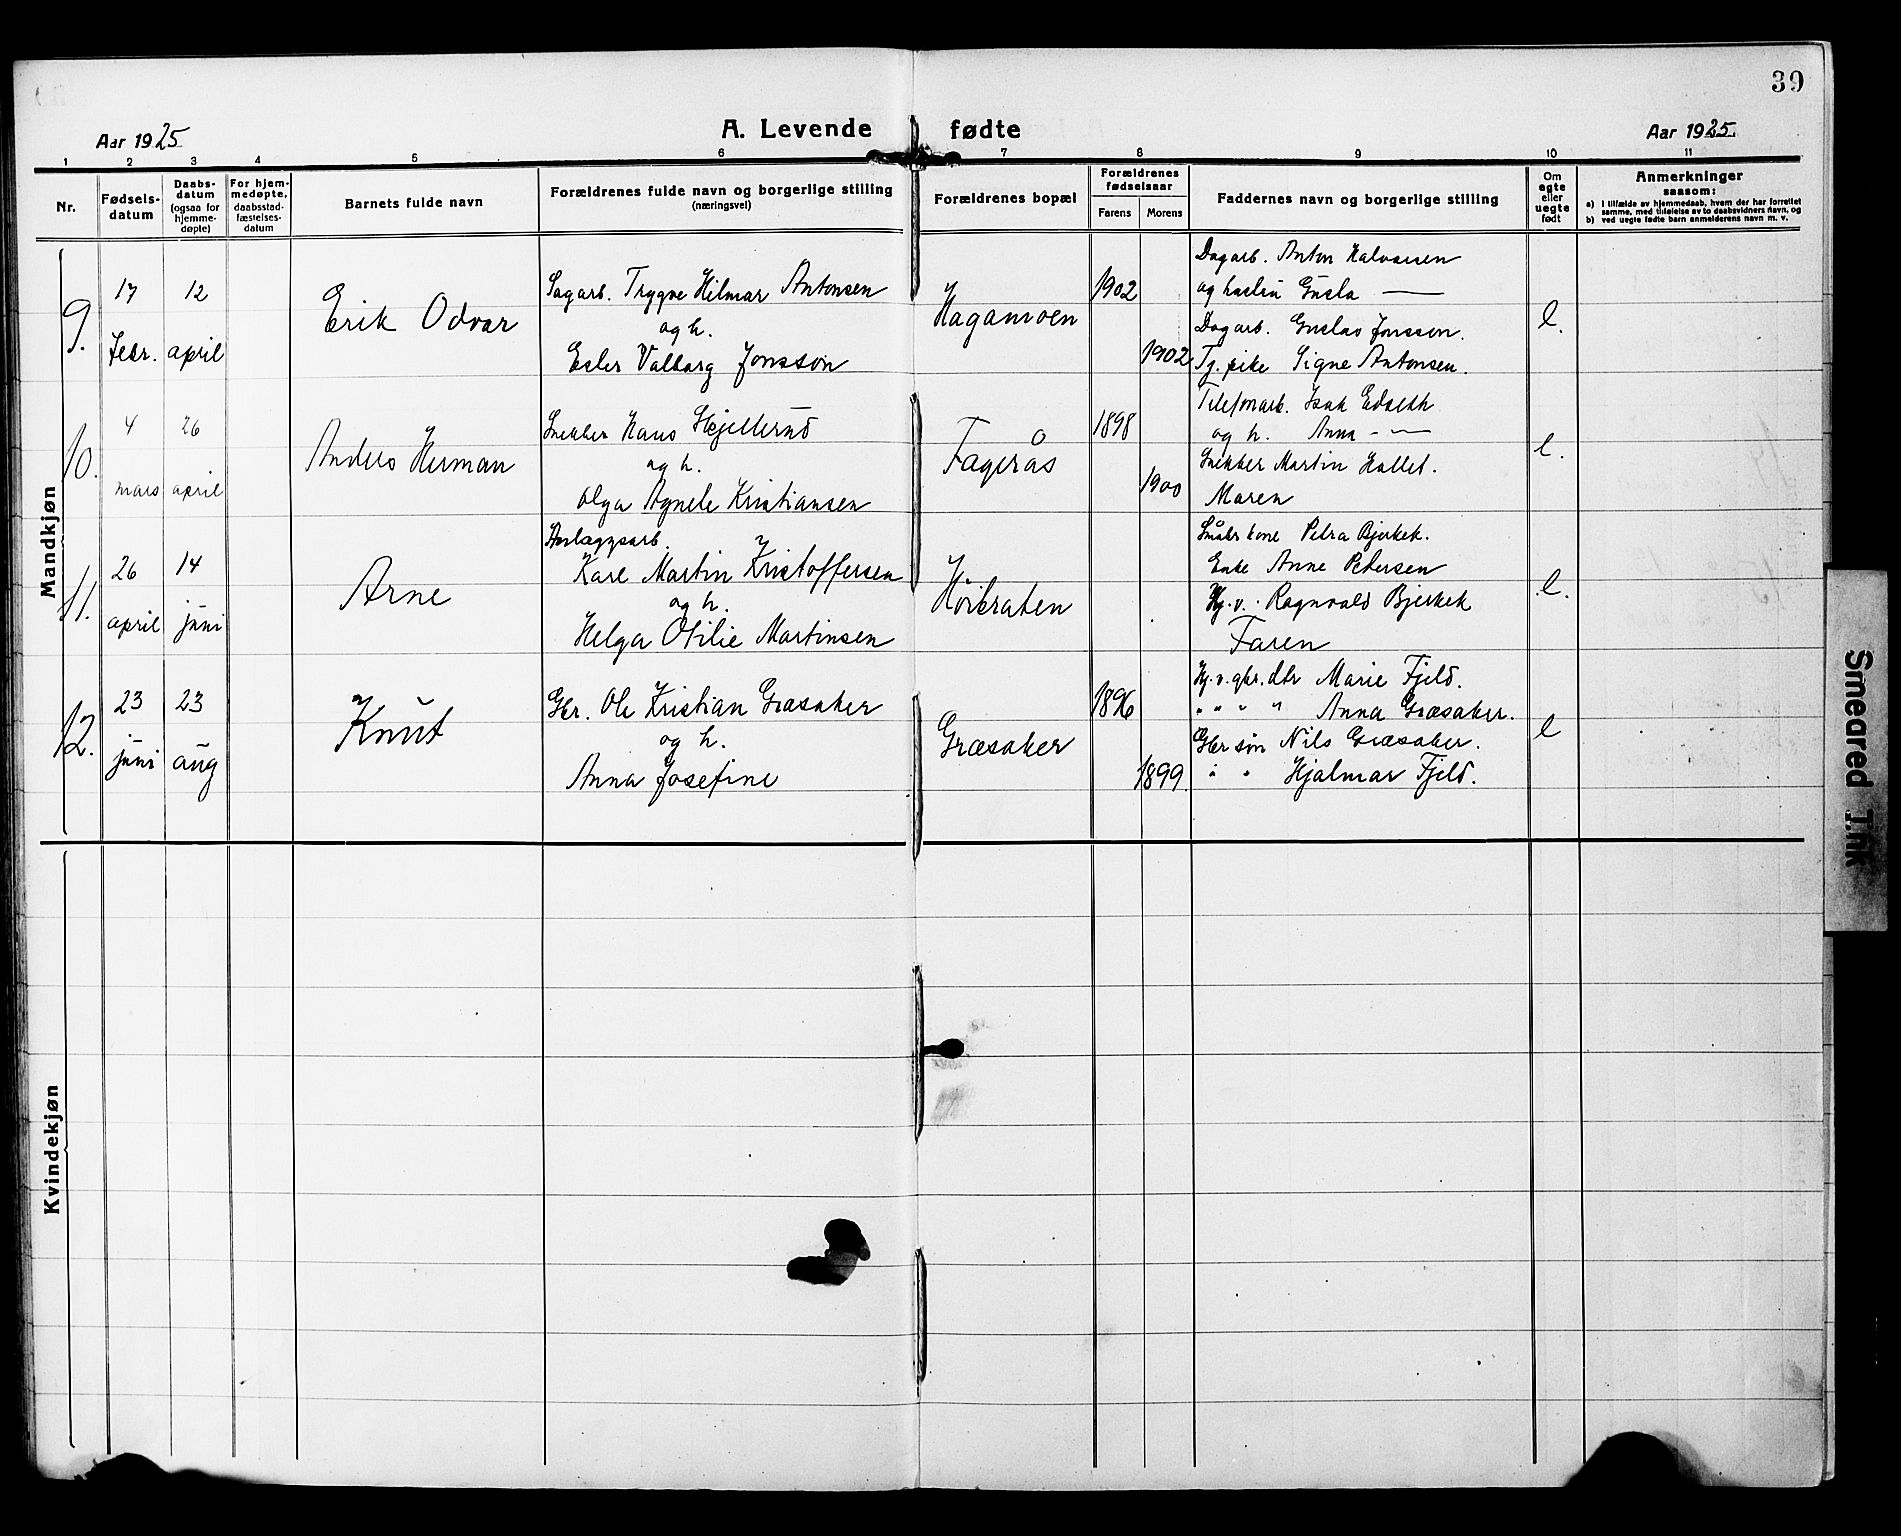 39
A. Levende fødte
Aar 1925
Aar 1925
1 2 3 4 5 6 7 8 9 10 11
Nr.
Fødsels-
datum
Daabs-
datum
(ogsaa for
hjemme-
døpte)
For hjem-
medøpte,
daabsstad-
fæstelses-
datum
Barnets fulde navn
Forældrenes fulde navn og borgerlige stilling
(næringsvei)
Forældrenes bopæl
Forældrenes
fødselsaar
Farens Morens
Faddernes navn og borgerlige stilling
Om
egte
eller
uegte
født
Anmerkninger
saasom:
a) i tilfælde av hjemmedaab, hvem der har forrettet
samme, med tilføielse av to daabsvidners navn, og
b) ved uegte fødte barn anmelderens navn m. v.
Mandkjøn
9.
17
Febr.
12
april
Erik Odvar
Sagarb. Trygve Hilmar Antonsen
og h.
Ester Valborg Jonsson
Hagamoen
1902
1902
Dagarb. Anton Halvorsen
og hustru Gusta —
Dagarb. Gustav Jonsson.
Tj. pike Signe Antonsen.
e.
10.
4
mars
26
april
Anders Herman
Snekker Hans Skjellerud
og h.
Olga Agnete Kristiansen
Fagerås
1898
1900
Telefonarb. Isak Edseth
og h. Anna - —
Snekker Martin Hallet.
Moren
e.
11.
26
april
14
juni
Arne
Anlægsarb.
Karl Martin Kristoffersen
og h.
Helga Otilie Martinsen
Höibraten
Småbr kone Petra Bjerkek.
Enke Anne Petersen
Hj. v. Ragnvald Bjerkek
Faren
e.
12.
23
juni
23
aug
Knut
Gbr. Ole Kristian Græsaker
og h.
Anna Josefine
Græsaker
1896
1899.
Hj. v. gbr. dtr Marie Fjeld.
" " " " Anna Græsaker.
Gbr søn Nils Græsaker.
" " Hjalmar Fjeld.
e
Kvindekjøn
Smeared Ink